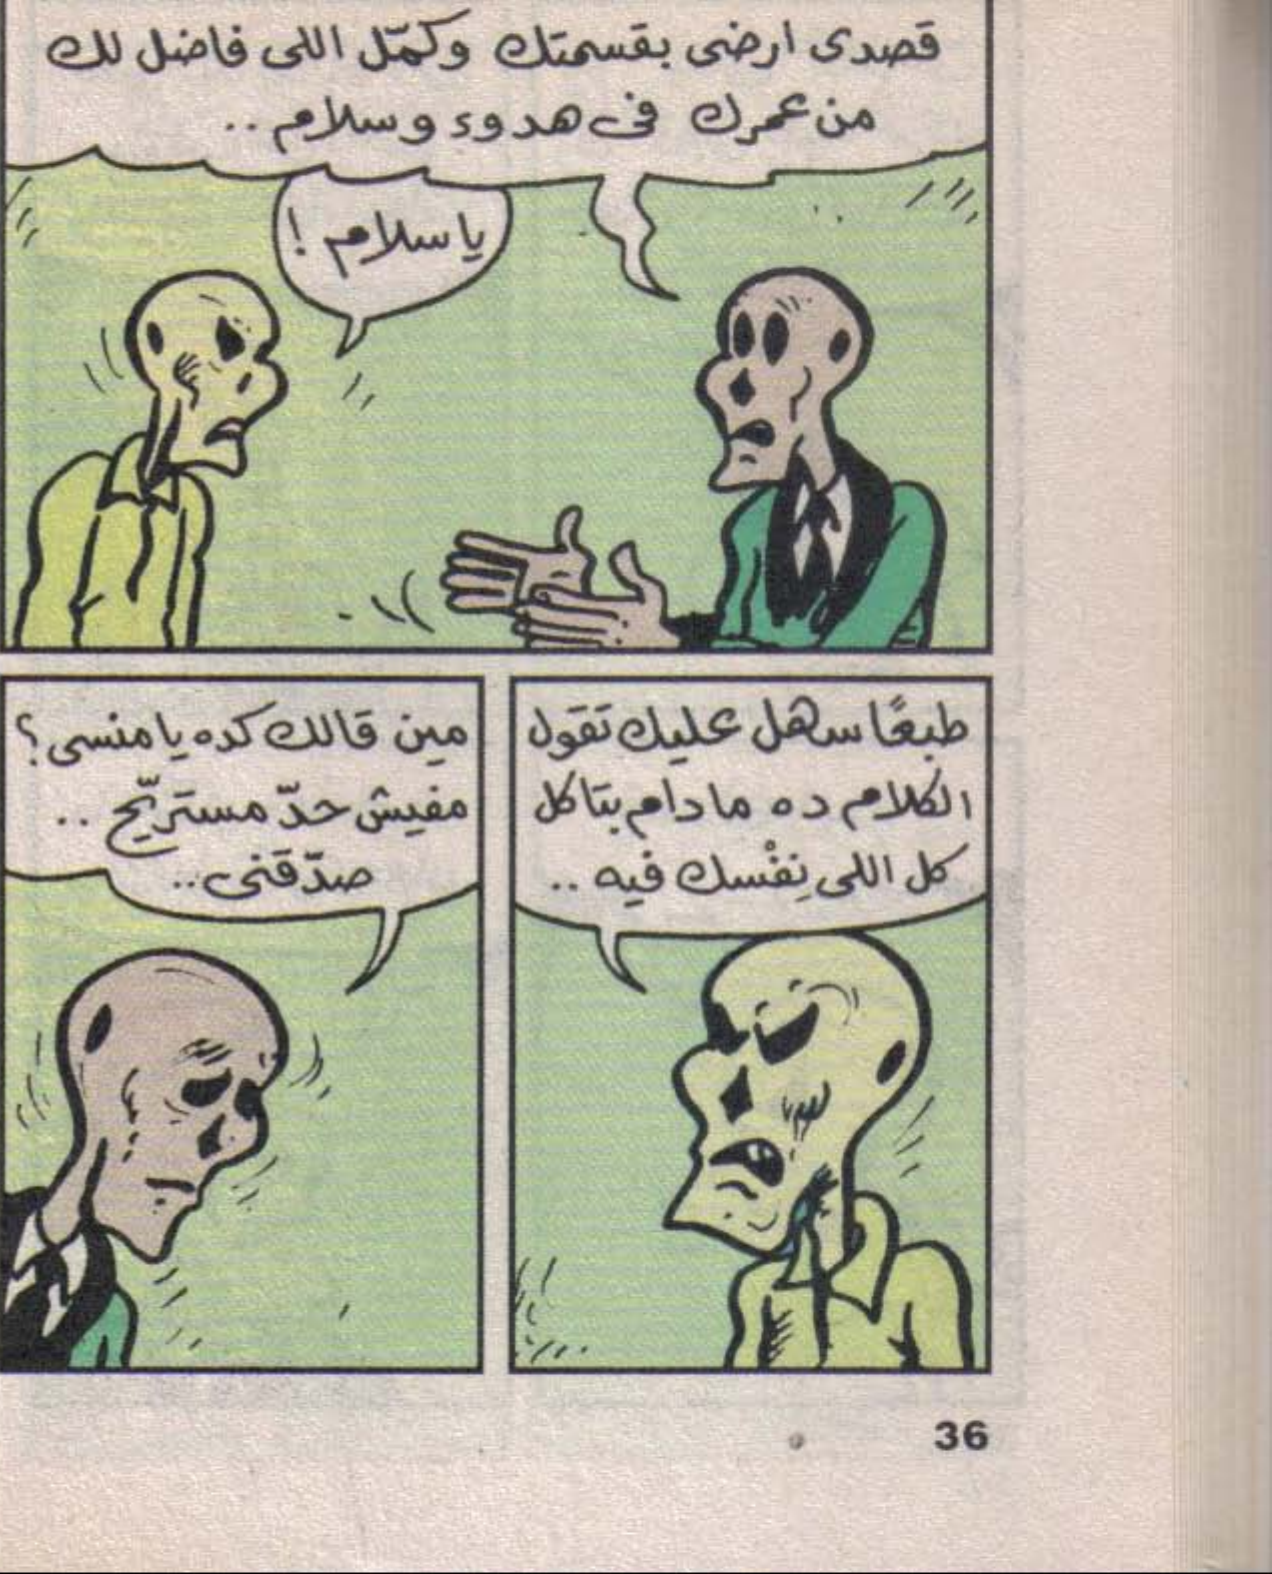 قصدى ارضى بقسمتك وكمّل اللى فاضل لك
من عمرك فى هدوء وسلام ..
يا سلام !
طبعًا سهل عليك تقول
الكلام ده مادام بتاكل
كل اللى نِفْسك فيه ..
مين قالك كده يا منسى ؟
مفيش حدّ مستريّح ..
صدّقنى ..
36